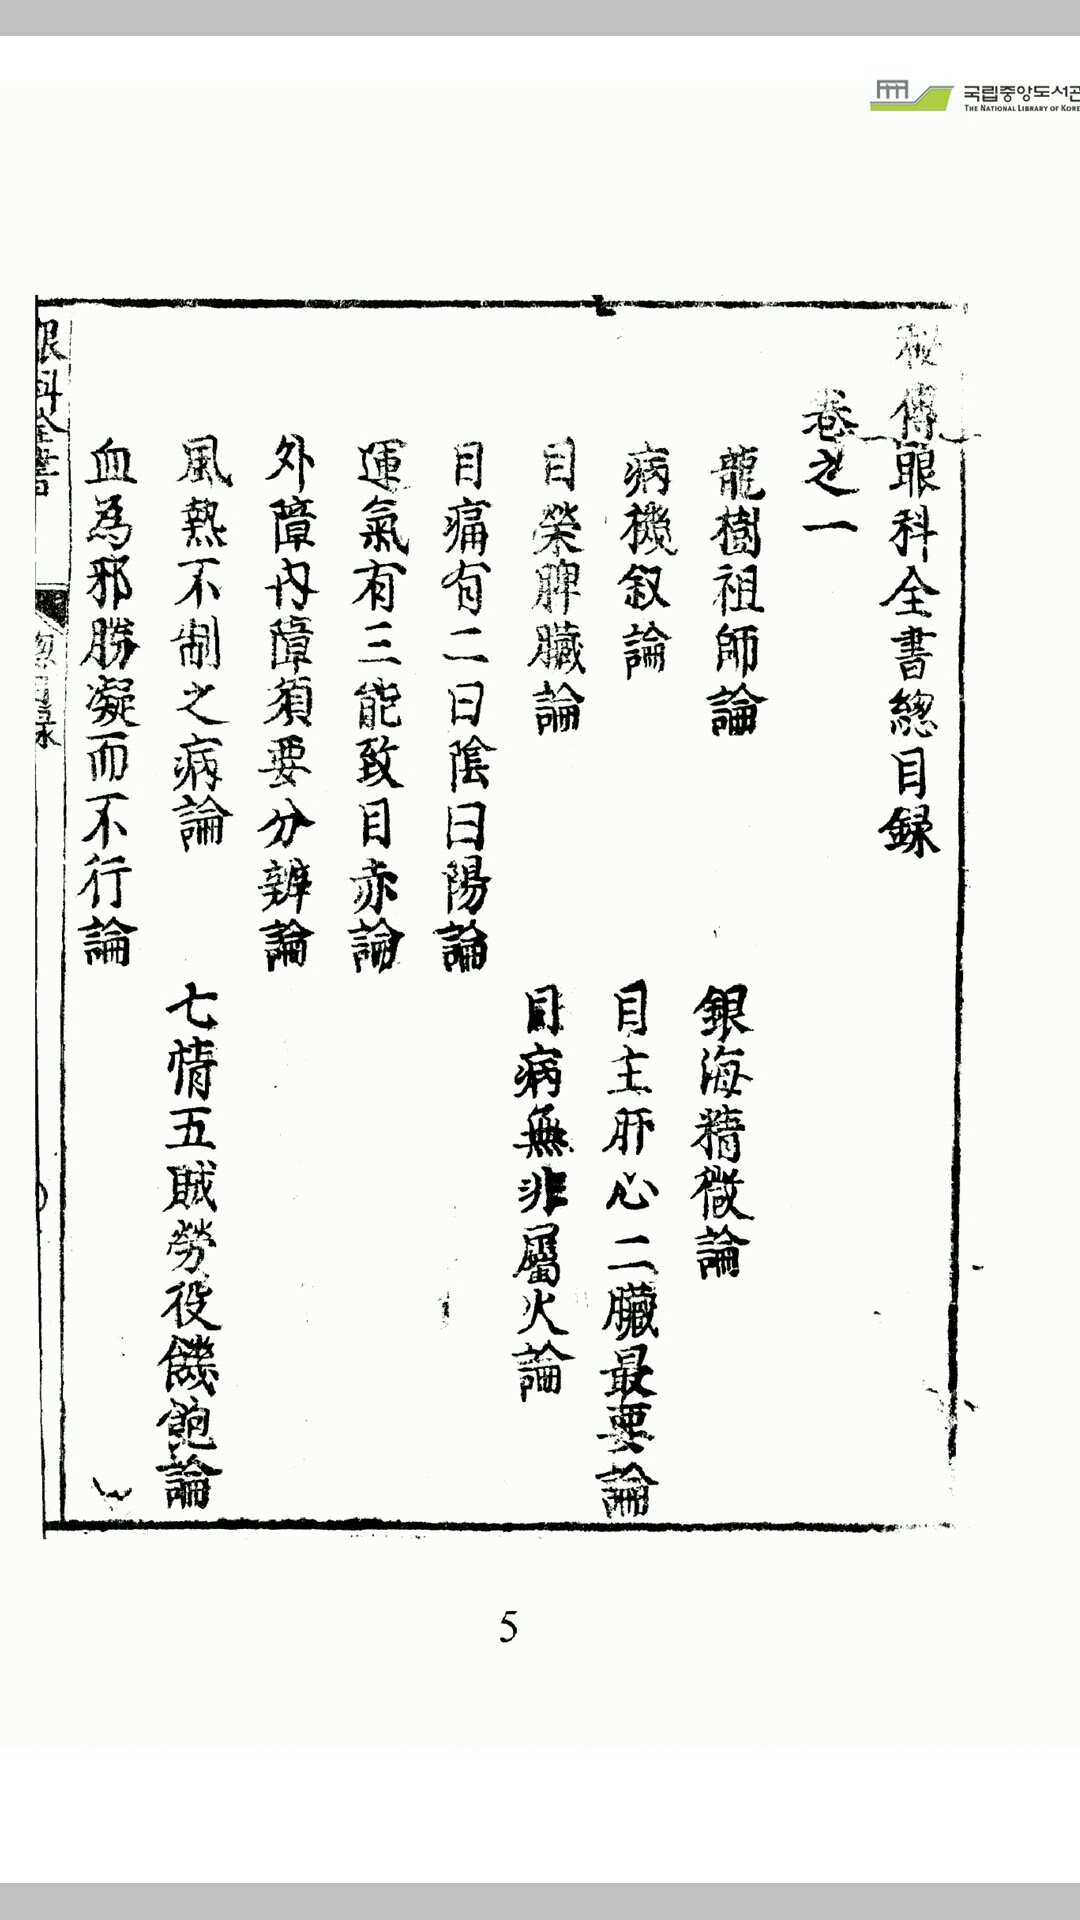 국립중앙도서관
THE NATIONAL LIBRARY OF KORE
秘傳眼科全書總目録
卷之一
龍樹祖師論 銀海精微論
病機叙論 目主肝心二臟最要論
目榮脾臟論 目病無非屬火論
目痛有二曰陰曰陽論
運氣有三能致目赤論
外障内障須要分辨論
風熱不制之病論 七情五賊勞役饑飽論
血為邪勝凝而不行論
眼科全書 總目録
5